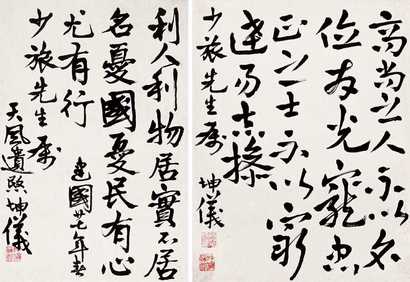 高尚之人不以名
位為光寵忠
正之士不以窮
達易志操
少旅先生屬
坤儀
利人利物居實不居
名憂國憂民有心
尤有行
建國廿七年春
少旅先生屬
天風遺照坤儀